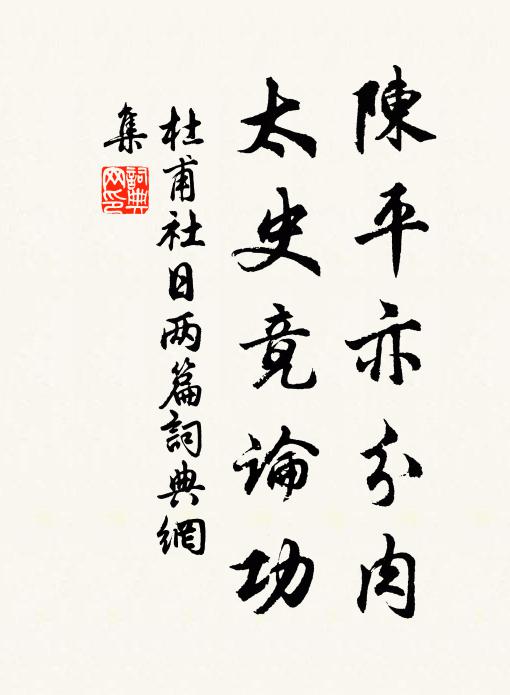 陳平亦分肉
太史竟論功
杜甫社日两篇詞典網
集
詞典
网印